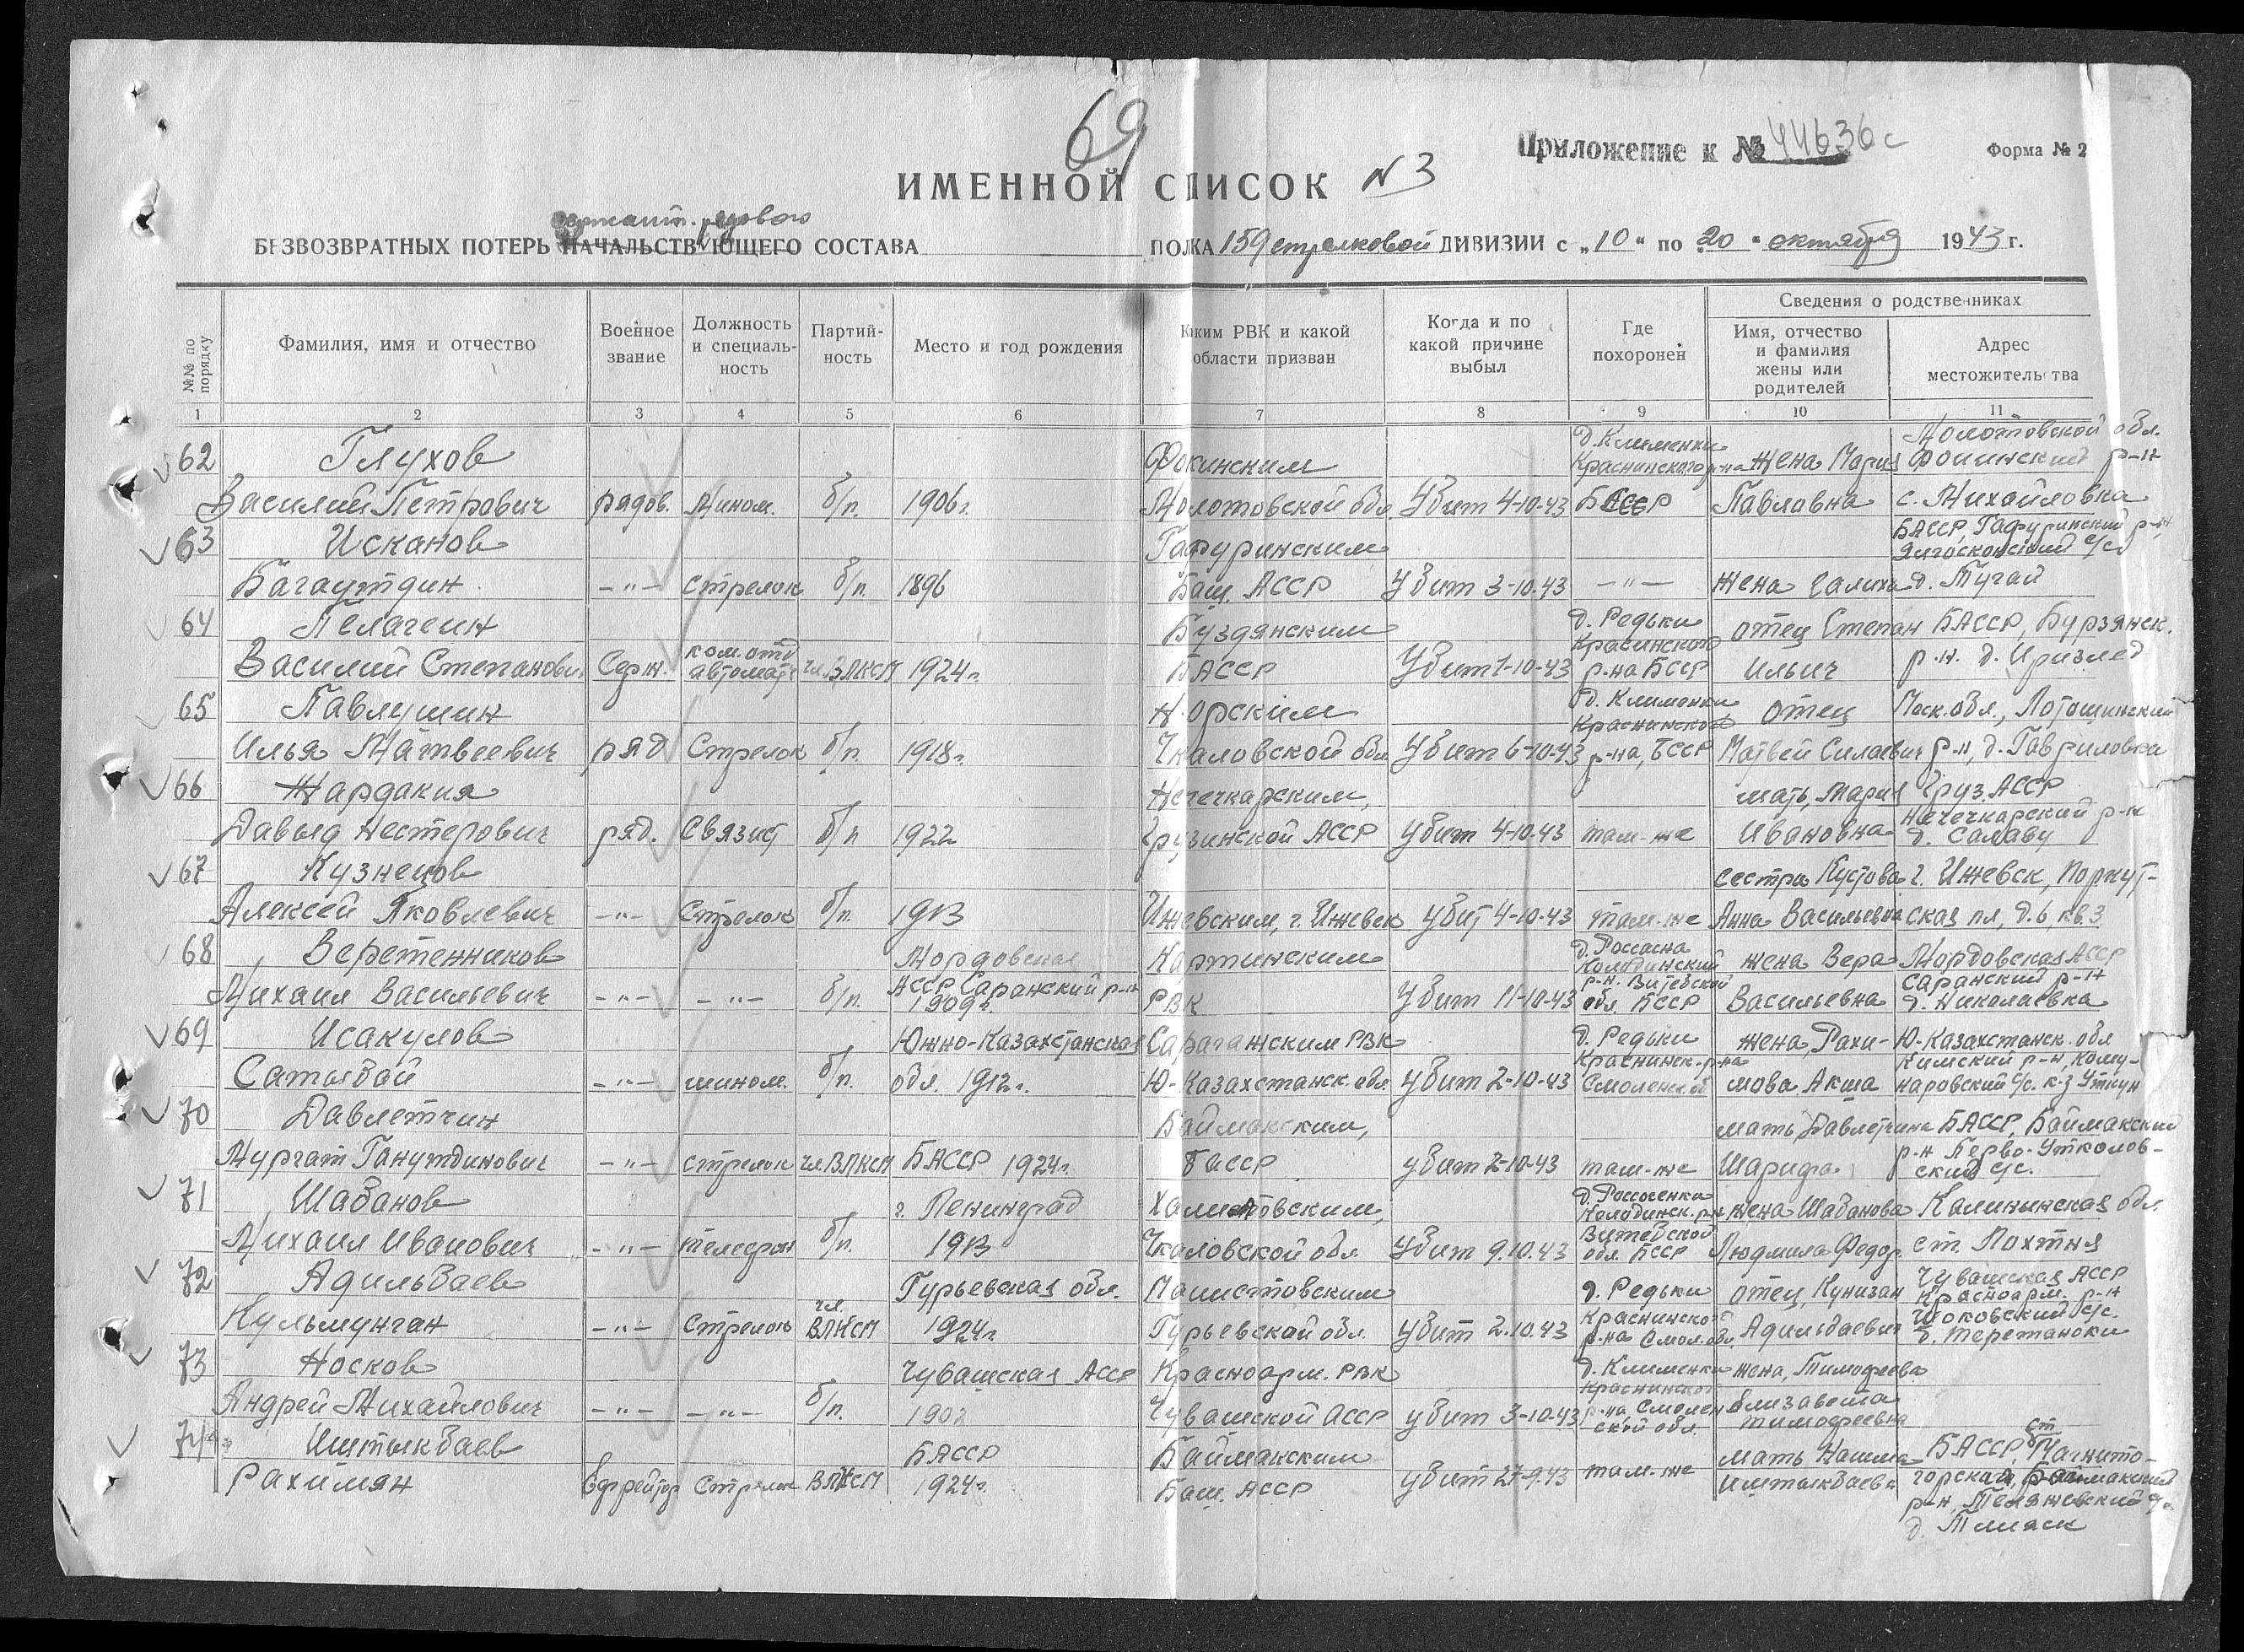 69
Приложение к № 44636с
Форма № 2
ИМЕННОЙ СПИСОК N 3
сержантск. рядового
БЕЗВОЗВРАТНЫХ ПОТЕРЬ НАЧАЛЬСТВУЮЩЕГО СОСТАВА ПОЛКА 159 стрелковой ДИВИЗИИ с „10" по 20 " октября 1943 г.
№№ по порядку
Фамилия, имя и отчество
Военное звание
Должность и специаль-ность
Партий-ность
Место и год рождения
Каким РВК и какой области призван
Когда и по какой причине выбыл
Где похоронен
Сведения о родственниках
Имя, отчество и фамилия жены или родителей
Адрес местожительства
1 2 3 4 5 6 7 8 9 10 11
62 Глухов Фокинским д. Клименки Краснинского р-на жена Мария Молотовской обл. Фокинский р-н
Василий Петрович рядов. Мином. б/п. 1906г. Молотовской обл. Убит 4-10-43 БССР Павловна с. Михайловка
63 Исканов Гафуринским БАССР, Гафуринский р-н, с/с
Багаутдин -"- стрелок б/п. 1896 Баш. АССР Убит 3-10-43 -"- жена Галиха д. Тугай
64 Пелагеин Буздянским д. Редьки Краснинского отец Степан БАССР, Бурзянск.
Василий Степанович Серж. ком. отд. автомат. чл. ВЛКСМ 1924г. БАССР Убит 1-10-43 р-на БССР Ильич р-н. д. Иризлед
65 Павлушин Н.орским д. Клименки Краснинского отец Моск. обл., Лотошинский
Илья Матвеевич ряд Стрелок б/п. 1918г. Чкаловской обл Убит 6-10-43 р-на, БССР Матвей Силаевич р-н, д. Гавриловка
66 Жардакия Нечечкарским, мать, Мария Груз. АССР Нечечкарский р-н
Давыд Нестерович ряд. Связист б/п 1922 Грузинской АССР Убит 4-10-43 там-же Ивановна д. Салаву
67 Кузнецов сестра Кустова г. Ижевск,
Алексей Яковлевич -"- Стрелок б/п. 1913 Ижевским, г. Ижевск Убит 4-10-43 там-же Анна Васильевна ская пл, д. 6, кв. 3
68 Веретенников Мордовская Нартинским д. Россасна жена Вера Мордовская АССР
Михаил Васильевич -"- -"- б/п. АССР Саранский р-н 1909г. РВК Убит 11-10-43 р-н. Витебской обл. БССР Васильевна Саранский р-н д. Николаевка
69 Исакулов Южно-Казахстанская Сарагажским РВК д. Редьки жена, Рахи- Ю-Казахстанск. обл
Сатыбай -"- мином. б/п. обл. 1912г. Ю-Казахстанск. обл. Убит 2-10-43 Краснинск. р-на Смоленск. об. мова Акша Кимский р-н, кому-наровский с/с. к-з Уткун
70 Давлетчин Баймакским, мать Давлетчина БАССР, Баймакский
Мургат Ганутдинович -"- стрелок чл. ВЛКСМ БАССР 1924г. БАССР убит 2-10-43 там-же Шарифа р-н Перво-Утколов-ский с/с.
71 Шабанов г. Ленинград Халиловским, д. Россоченки р-н жена Шабанова Калининская обл.
Михаил Иванович -"- телефон б/п. 1913 Чкаловской обл. Убит 9.10.43 Витебской обл. БССР Людмила Федор. ст. Лохтня
72 Адильбаев Гурьевская обл. д. Редьки отец, Кунизан Чувашская АССР Красноарм. р-н
Кульмунган -"- Стрелок чл. ВЛКСМ 1924г Гурьевской обл. Убит 2.10.43 Краснинской р-на Смол. обл. Адильбаевич Шоковский с/с. д. Теретаноки
73 Носков Чувашская АССР Красноарм. РВК д. Клименки жена, Тимофеева
Андрей Михайлович -"- -"- б/п. 1902 Чувашской АССР убит 3-10-43 Краснинской р-на, Смолен ской обл. Елизавета Тимофеевна
74 Иштыкбаев БАССР Баймакским мать Нашма БАССР, ст Магнито-
Рахимян Ефрейтор Стрелок ВЛКСМ 1924г. Баш. АССР убит 27-9-43 там-же Иштыкбаева горская, Баймакский
р-н, с/с.
д.